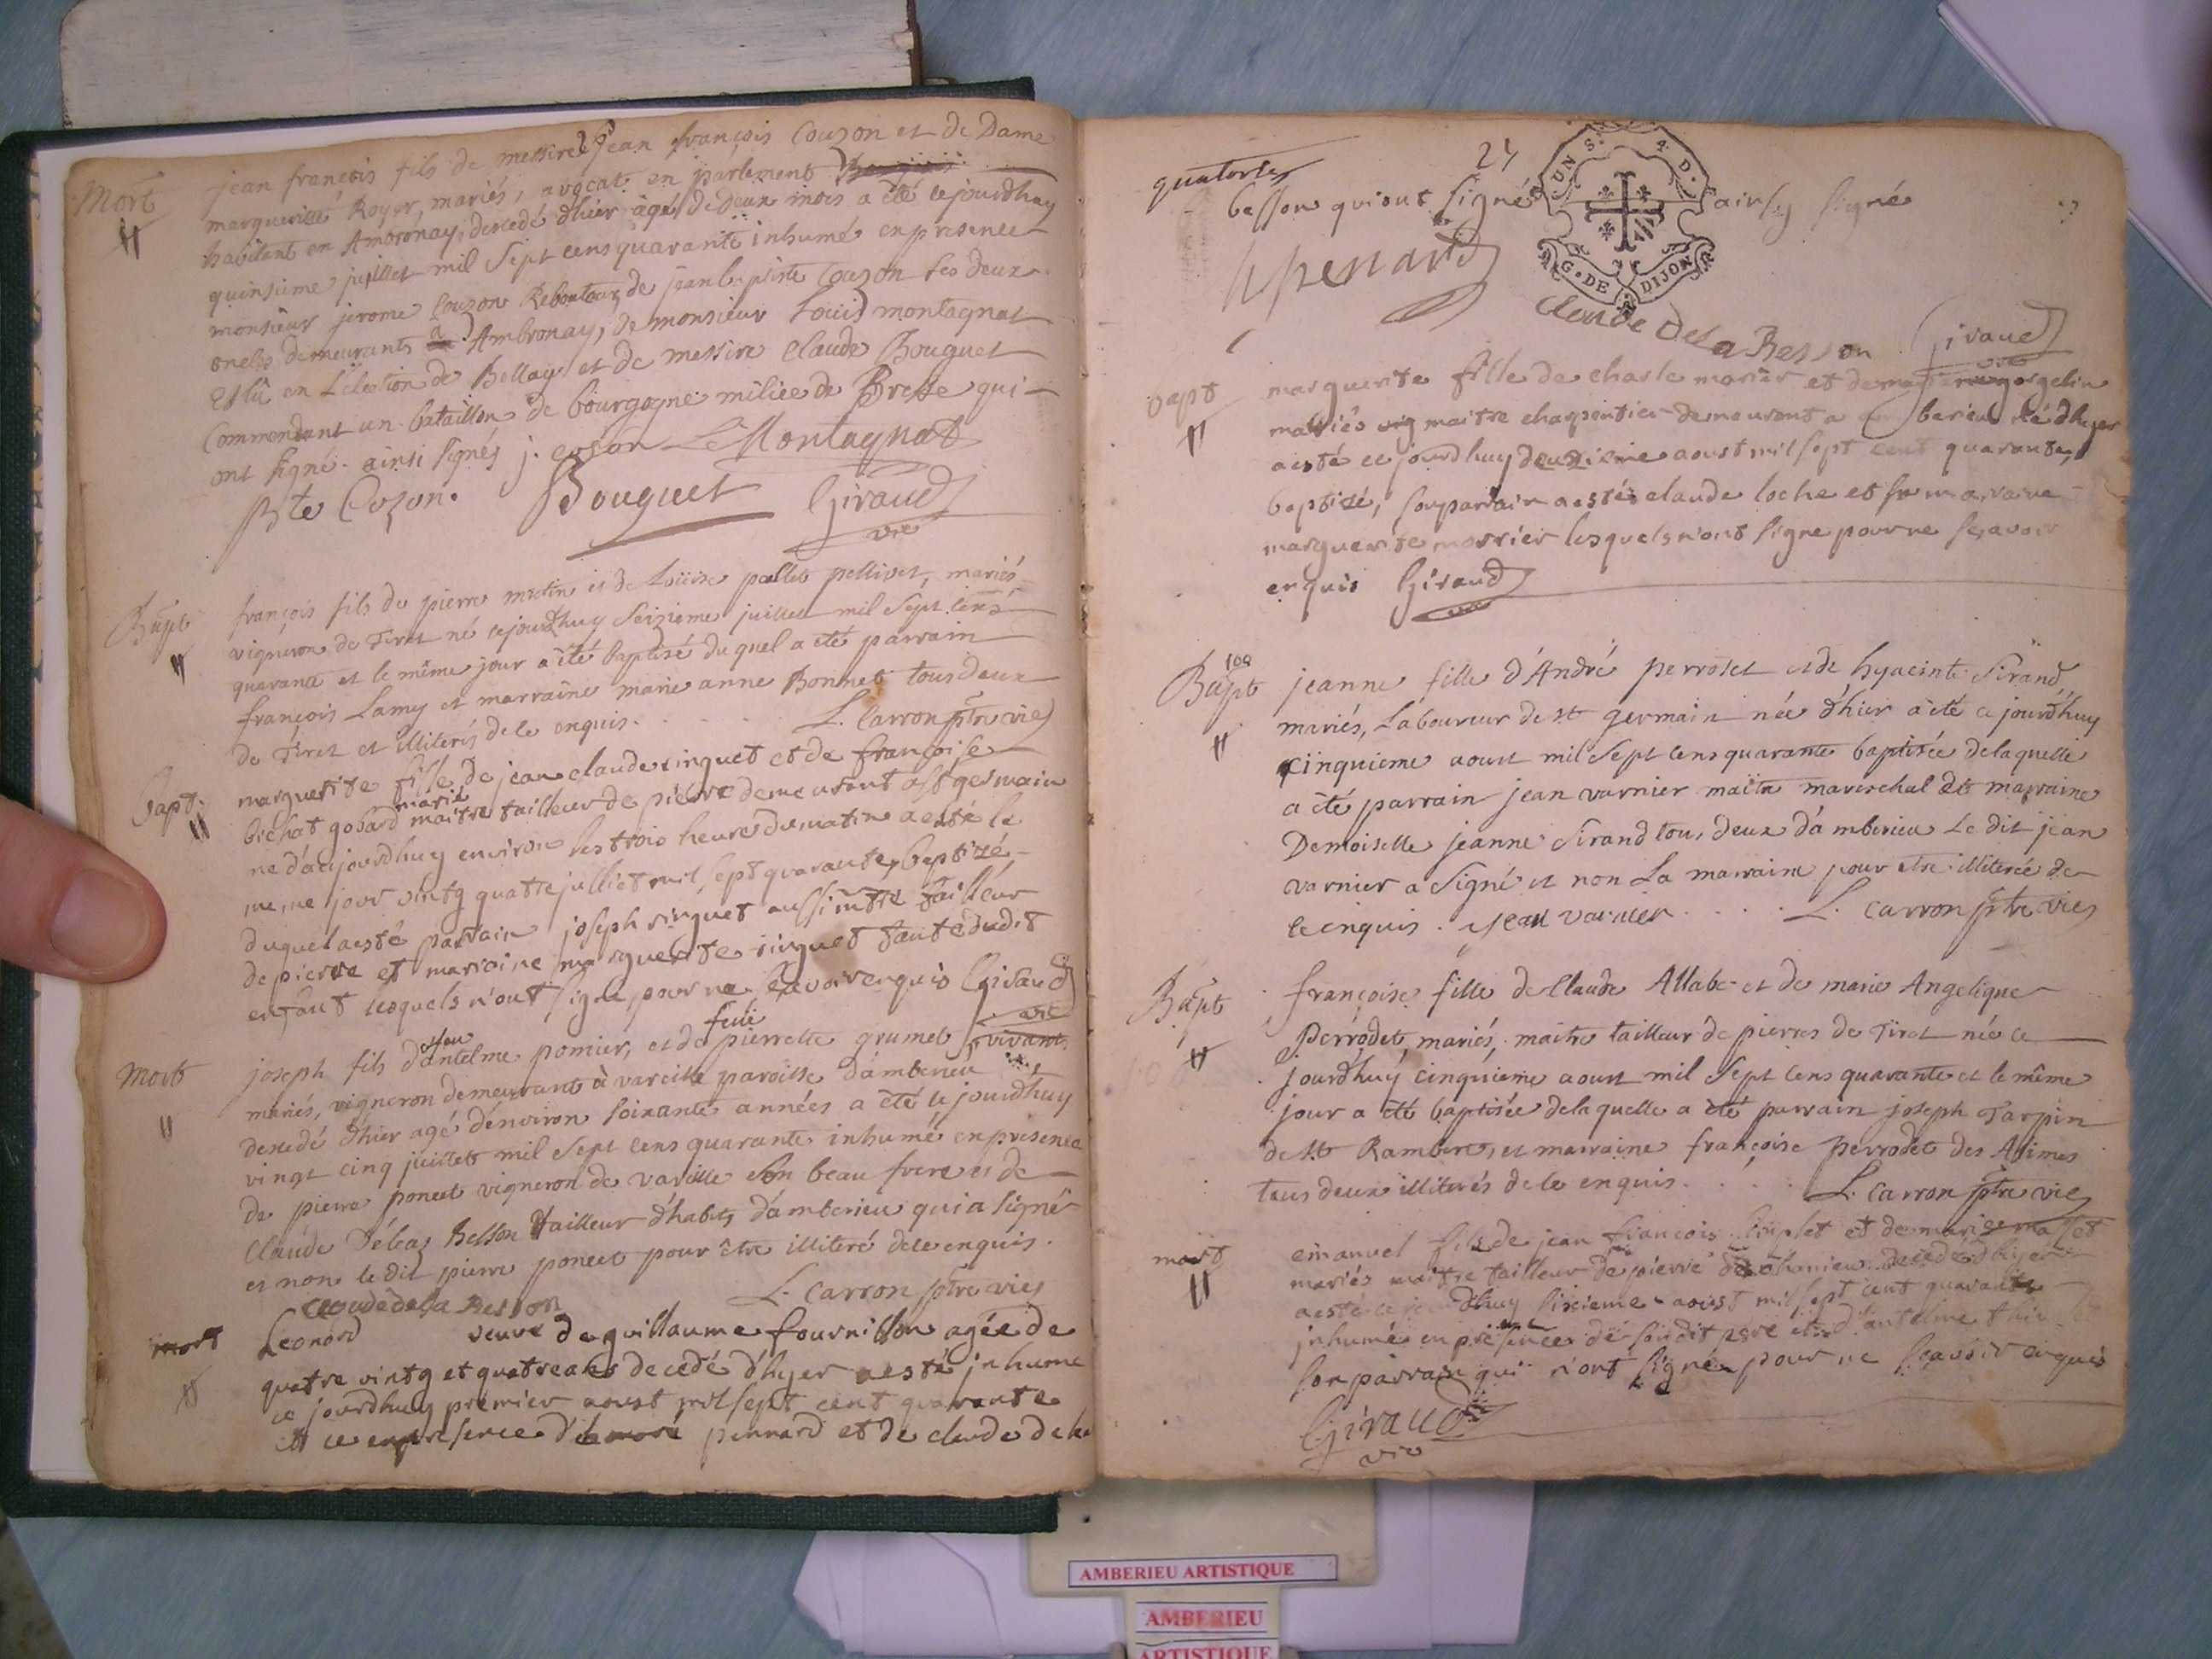 Mort
jean francois fils de messire jean françois Couzon et de Dame
margueritte Royer, mariés, avocat en parlement
habitant en Ambronay, decedé d'hier agé de deux mois a été cejourdhuy
quinsieme juillet mil sept cens quarante inhumé en presence
monsieur jerome Couzon de jean baptiste Couzon ses deux
oncles demeurants a Ambronay, de monsieur Loüis montagnat
eslû en L'election de Bellay et de messire Claude Bouguet
Commendant un bataillon de bourgogne milice de Bresse qui
ont signé. ainsi signés j. cozon Montagnat
Bte Cozon. Bouguet Giraud
vic
Bapt
françois fils de pierre et de Loüise pallet pellivet, mariés
vigneron de Tiret né cejourdhuy seizieme juillet mil sept cens
quarante et le même jour a été baptisé duquel a été parrain
françois Lamy et marraine marie anne Bonnet tous deux
de Tiret et illiterés de ce enquis. L. Carron ptre vic
Bapt.
marguerite fille de jean claude singuet et de francoise
bichat gobard marié maitre tailleur de pierre demeurant a st germain
ne d'aujourdhuy environ les trois heure du matin a esté le
meme jour vintg quatre julliet mil sept quarante, baptizé,
duquel a esté parrain joseph singuet aussi mtre tailleur
de pierre et marraine marguerite singuet tante dudit
enfant lesquels n'ont signe pour ne sçavoir enquis Giraud
vic
Mort
joseph fils d'antelme pomier, et de feüe pierrette grumet vivant
mariés, vigneron demeurant à vareille paroisse d'amberieu
decedé d'hier agé d'environ soixante années a été cejourdhuy
vingt cinq juillet mil sept cens quarante inhumé en presence
de pierre poncet vigneron de vareille son beau frere et de
Claude Besson tailleur d'habits d'amberieu qui a signé
et non le dit pierre poncet pour être illiteré de ce enquis.
L. Carron ptre vic
Claude dela Besson
mort
Leonard veuve de guillaume fournillon agée de
quatre vintg et quatre ans decedé d'hyer a esté inhume
ce jourdhuy premier aoust mil sept cent quarante
et ce en presence pennard et de claude dela
quatorze
24
besson qui ont signé ainsy signé
UN S. 4 D.
G. DE DIJON
pennard
Claude Dela Besson Giraud
vic
bapt
marguerite fille de charle morier et de gorgelin
mariés maitre chapentier demeurant a amberieu né d'hyer
a esté ce jourdhuy deuzieme aoust mil sept cent quarante,
baptizé, son parrain a esté claude loche et sa maraine
marguerite morrier lesquels n'ont signe pour ne sçavoir
enquis Giraud
vic
100
Bapt
jeanne fille d'André perrodet et de hyacinte Sirand
mariés, Laboureur de st germain née d'hier a été ce jourdhuy
cinquieme aoust mil sept cens quarante baptisée de laquelle
a été parrain jean varnier maitre marechal et marraine
Demoiselle jeanne Sirand tous deux d'amberieu Le dit jean
varnier a signé et non La marraine pour etre illiterée de
ce enquis. jean varnier L. Carron ptre vic
Bapt
françoise fille de Claude Allabe et de marie Angelique
Perrodet, mariés, maitre tailleur de pierres de Tiret née ce
jourdhuy cinquieme aoust mil sept cens quarante et le même
jour a été baptisée de laquelle a été parrain joseph Tarpin
de st Rambert, et marraine françoise perrodet des Alimes
tous deux illiterés de ce enquis. L. Carron ptre vic
mort
emanuel fils de jean francois et de marie
mariés maitre tailleur de pierre decedé d'hyer
a esté ce jourdhuy sixieme aoust mil sept cent quarante
inhumé en presence de sondit pere et d'antelme
son parrain qui n'ont signé pour ne sçavoir enquis
Giraud
vic
AMBERIEU ARTISTIQUE
AMBERIEU
ARTISTIQUE